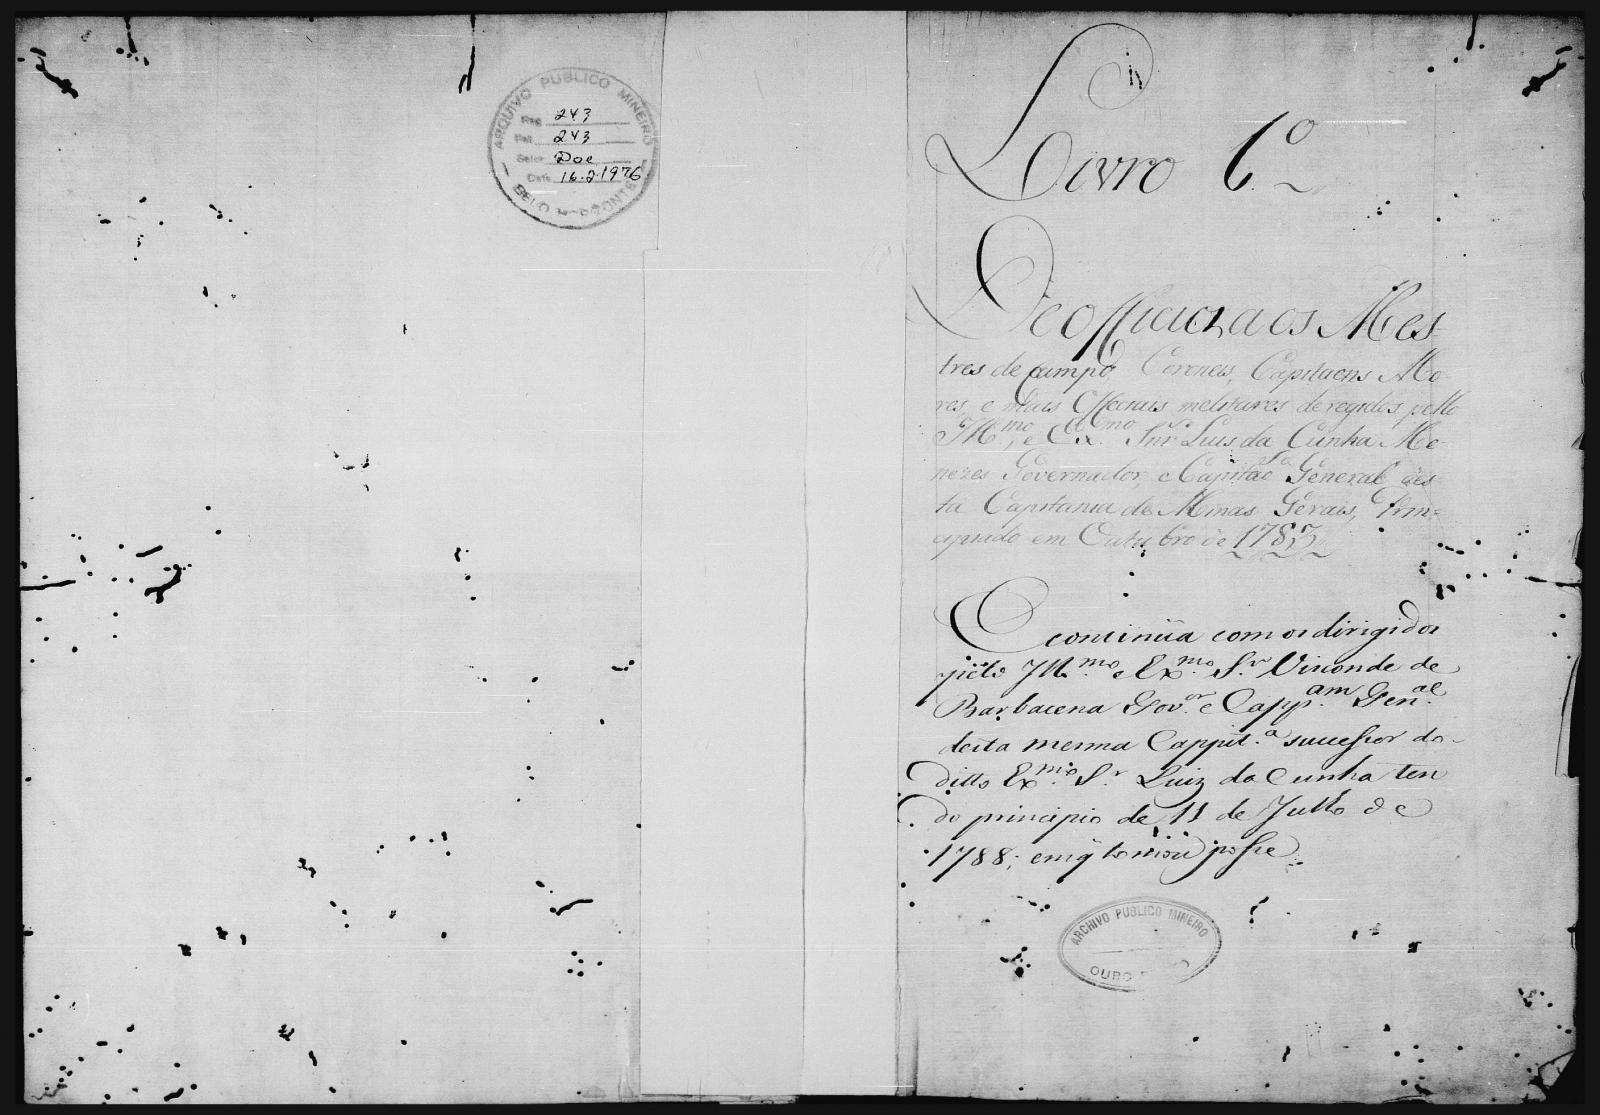 ARQUIVO PUBLICO MINEIRO
Reg. 243
Fol. 243
Setor Doc
Data 16.2.1976
BELO HORIZONTE
Livro 6º
De officios aos Mes
tres de campo, Coroneis, Capitaens Mo
res, e mais Officiais melitares deregidos pello
Illmo, e Exmo Snr Luis da Cunha Me
nezes Governador, e Capitão General des
ta Capitania de Minas Gerais, Prin=
cipiado em Outubro de 1787
E continúa com os dirigidos
pielo Illmo. e Exmo. Sr. Visconde de
Barbacena Govor. e Cappam. Genal.
desta mesma Cappit.a sucessor do
ditto Exmo. Sr. Luiz da Cunha ten
do principio de 11 de Julho de
1788; em q̃ tomou posse
ARCHIVO PUBLICO MINEIRO
OURO